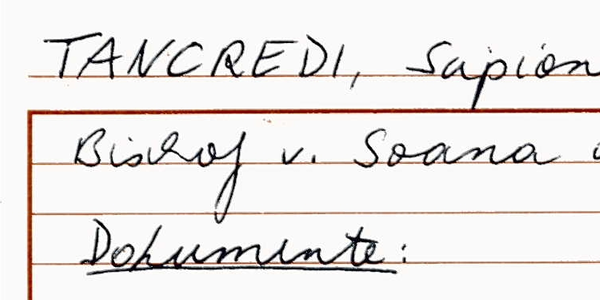 TANCREDI, Scipion
Bischof v. Soana
Dokumente: